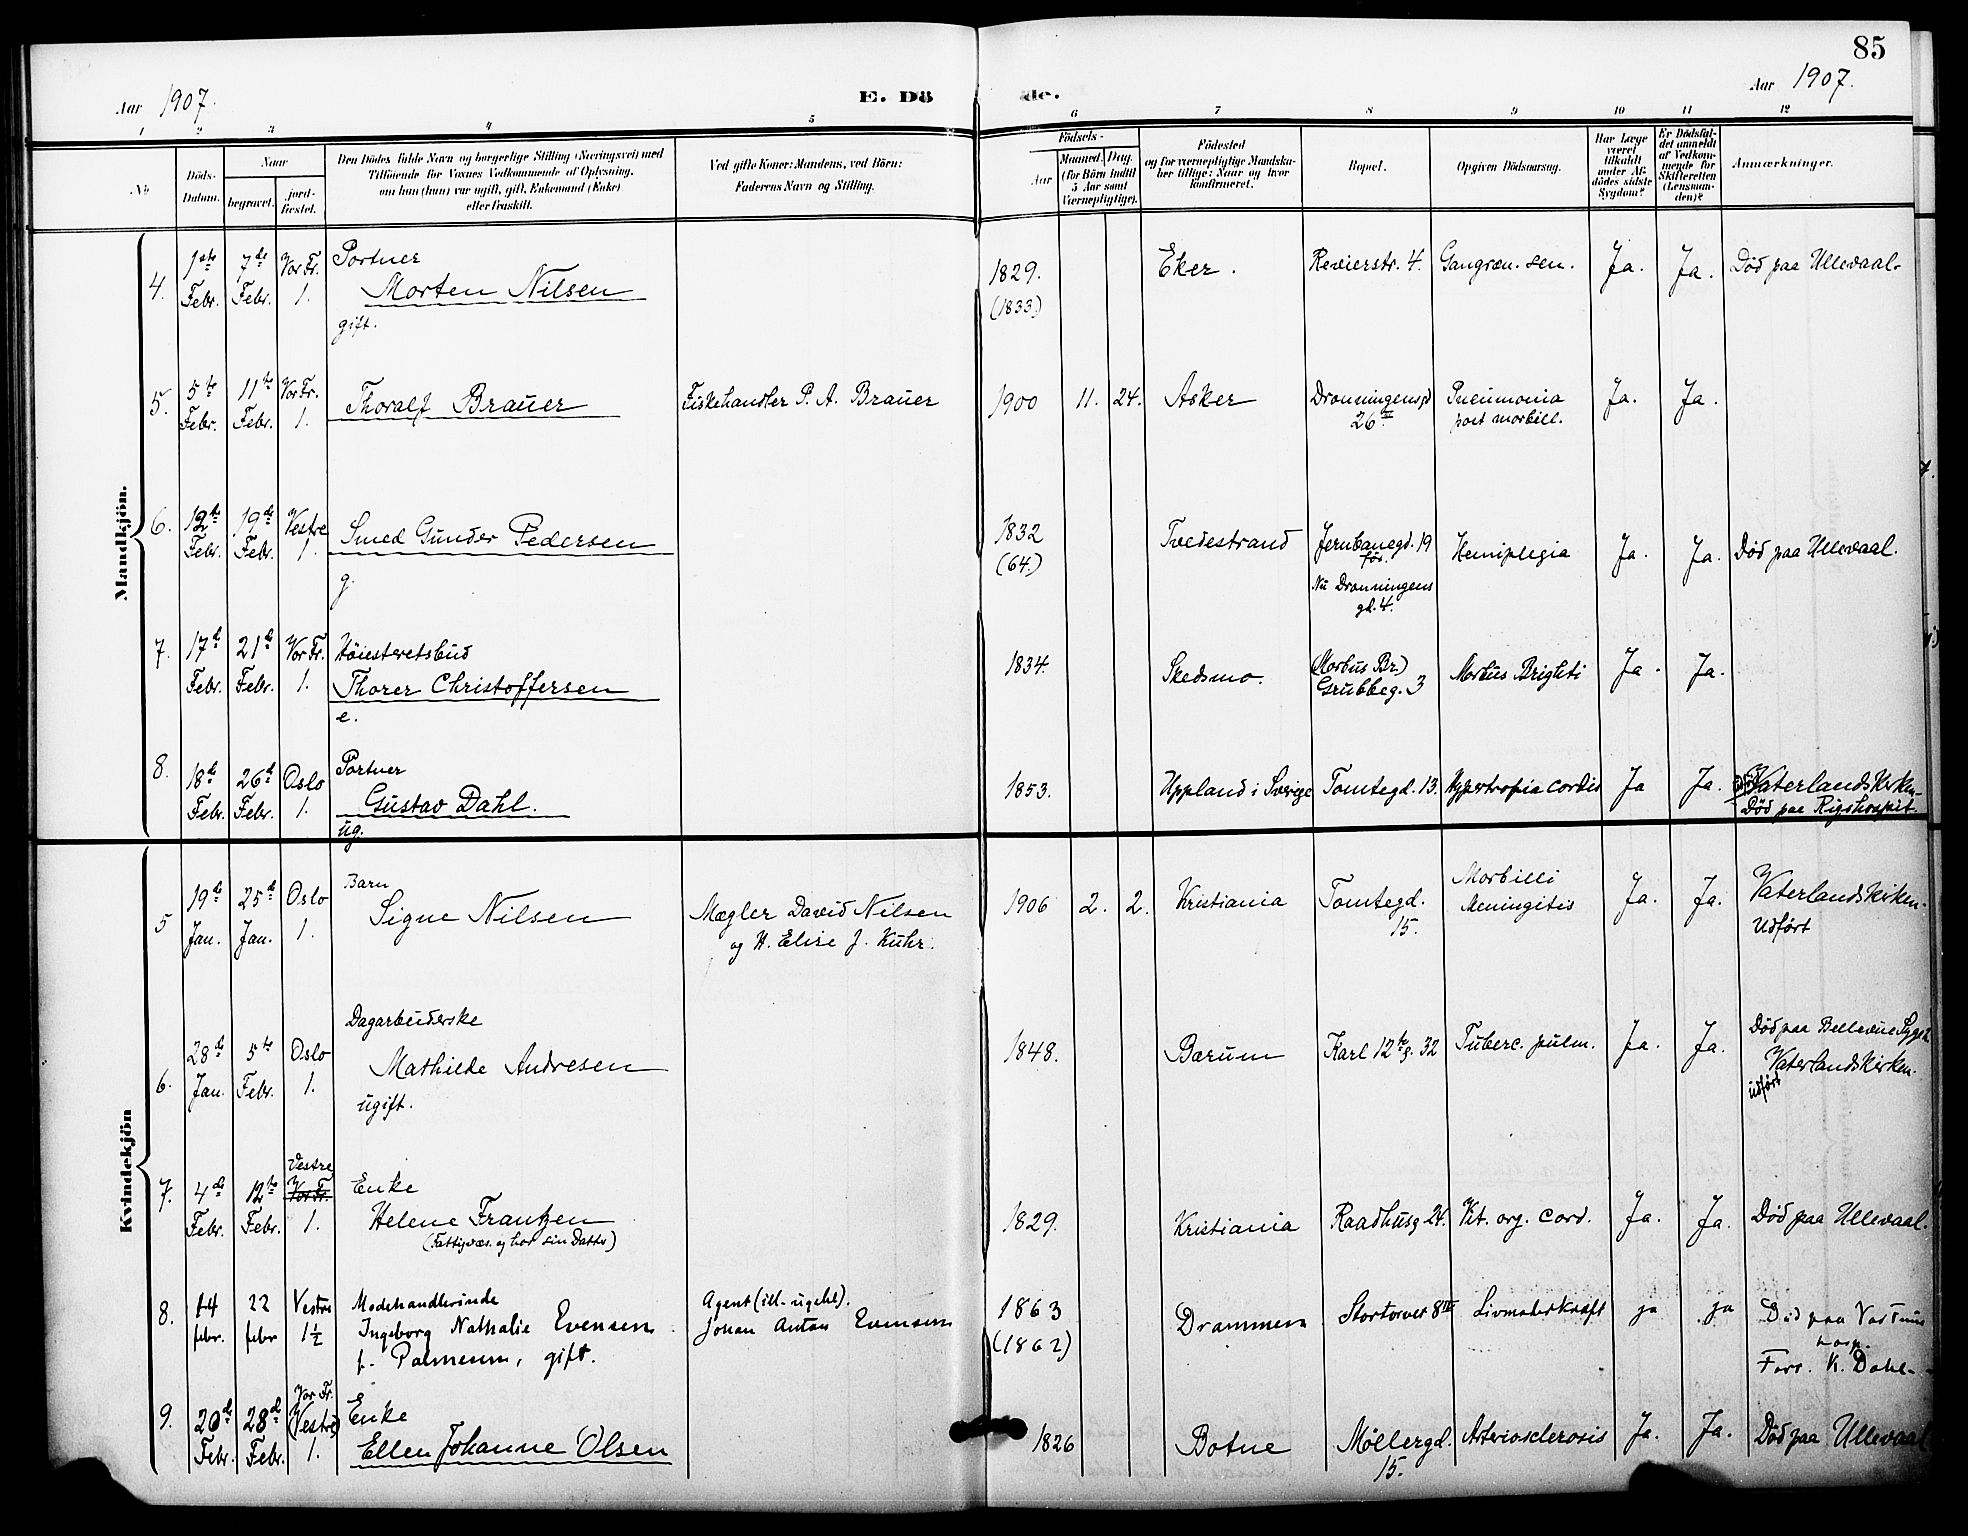 85
Aar 1907.
E. Dö
de.
Aar 1907.
1 2 3 4 5 6 7 8 9 10 11 12
№
Döds-
Datum.
Naar
begravet.
jord-
fæstet.
Den Dödes fulde Navn og borgerlige Stilling (Næringsvei) med
Tilföiende for Voxnes Vedkommende af Oplysning,
om han (hun) var ugift, gift, Enkemand (Enke)
eller fraskilt.
Ved gifte Koner: Mandens, ved Börn:
Faderens Navn og Stilling.
Födsels-
Aar
Maaned. Dag.
(for Börn indtil
5 Aar samt
Værnepligtige).
Födested
og for værnepligtige Mandska-
ber tillige: Naar og hvor
konfirmeret.
Bopæl.
Opgiven Dödsaarsag.
Har Læge
været
tilkaldt
under Af-
dödes sidste
Sygdom?
Er Dödsfal-
det anmeldt
af Vedkom-
mende for
Skifteretten
(Lensman-
den)?
Anmærkninger.
Mandkjön.
4.
1ste
Febr.
7de
Febr.
Vor Fr.
1.
Portner
Morten Nilsen
gift.
1829.
(1833)
Eker.
Revierstr. 4.
Gangræn. sen.
Ja.
Ja.
Död paa Ullevaal.
5.
5te
Febr.
11te
Febr.
Vor Fr.
1.
Thoralf Brauer
Fiskehandler P. A. Brauer
1900
11.
24.
Asker
Dronningensgd
26 III
Pneumonia
post morbill.
Ja.
Ja.
6.
12te
Febr.
19de
Febr.
Vestre
1.
Smed Gunder Pedersen
g.
1832
(64.)
Tvedestrand
Jernbanegd. 19
för.
Nu Dronningens
gd. 4.
Hemiplegia
Ja.
Ja.
Död paa Ullevaal.
7.
17d
Febr.
21d
Febr.
Vor Fr.
1.
Höiesteretsbud
Thorer Christoffersen
e.
1834.
Skedsmo.
(Morbus Br.)
Grubbeg. 3
Morbus Brighti
Ja.
Ja.
8.
18de
Febr.
26d
Febr.
Oslo
1.
Portner
Gustav Dahl.
ug.
1853.
Uppland i Sverige
Tomtegd. 13.
Hypertrofia cordis
Ja
Ja.
Vaterlandskirken
Död paa Rigshospit.
Kvindekjön
5
19de
Jan.
25d
Jan.
Oslo
1.
Barn
Signe Nilsen
Mægler David Nilsen
og H. Elise J. Kuhr.
1906
2.
2.
Kristiania
Tomtegd.
15.
Morbilli
Meningitis
Ja.
Ja.
Vaterlandskirken.
Udfört
6.
28de
Jan.
5te
Febr.
Oslo
1.
Dagarbeiderske
Mathilde Andresen
ugift.
1848.
Bærum
Karl 12te g. 32
Tuberc. pulm.
Ja.
Ja.
Död paa Bellevue Sygeh
Vaterlandskirken.
udfört
7.
4de
Febr.
12te
Febr.
Vestre
Vor Fr.
1.
Enke
Helene Frantzen
(Fattigvæs. og hos sin Datter)
1829.
Kristiania
Raadhusg 24.
Vit. org. cord.
Ja.
Ja.
Död paa Ullevaal.
8.
14
febr.
22
febr
Vestre
1½
Modehandlerinde
Ingeborg Nathalie Evensen
f. Palmerum, gift.
Agent (ill-ugehl).
Johan Anton Evensen
1863
(1862)
Drammen
Stortorvet 8 III
Livmoderkræft
ja
ja
Död paa Vor Frues
hosp.
Forr. K. Dahl-
9.
20d
Febr.
28d
Febr.
Vor Fr.
(Vestre)
1.
Enke
Ellen Johanne Olsen
1826
Botne
Möllergd.
15.
Arteriosclerosis
Ja.
Ja.
Död paa Ullevaal